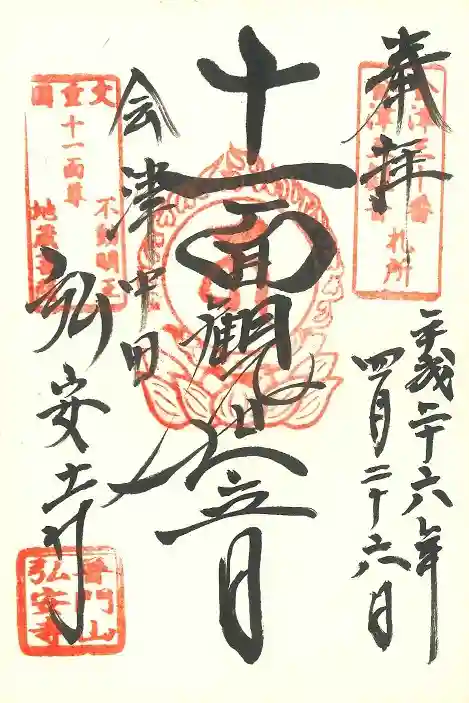 奉拝
平成二十六年
四月二十六日
十一面観世音
会津中田
弘安寺
札所
重十一面尊
文
国
不動明王
地蔵
普門山
弘安寺